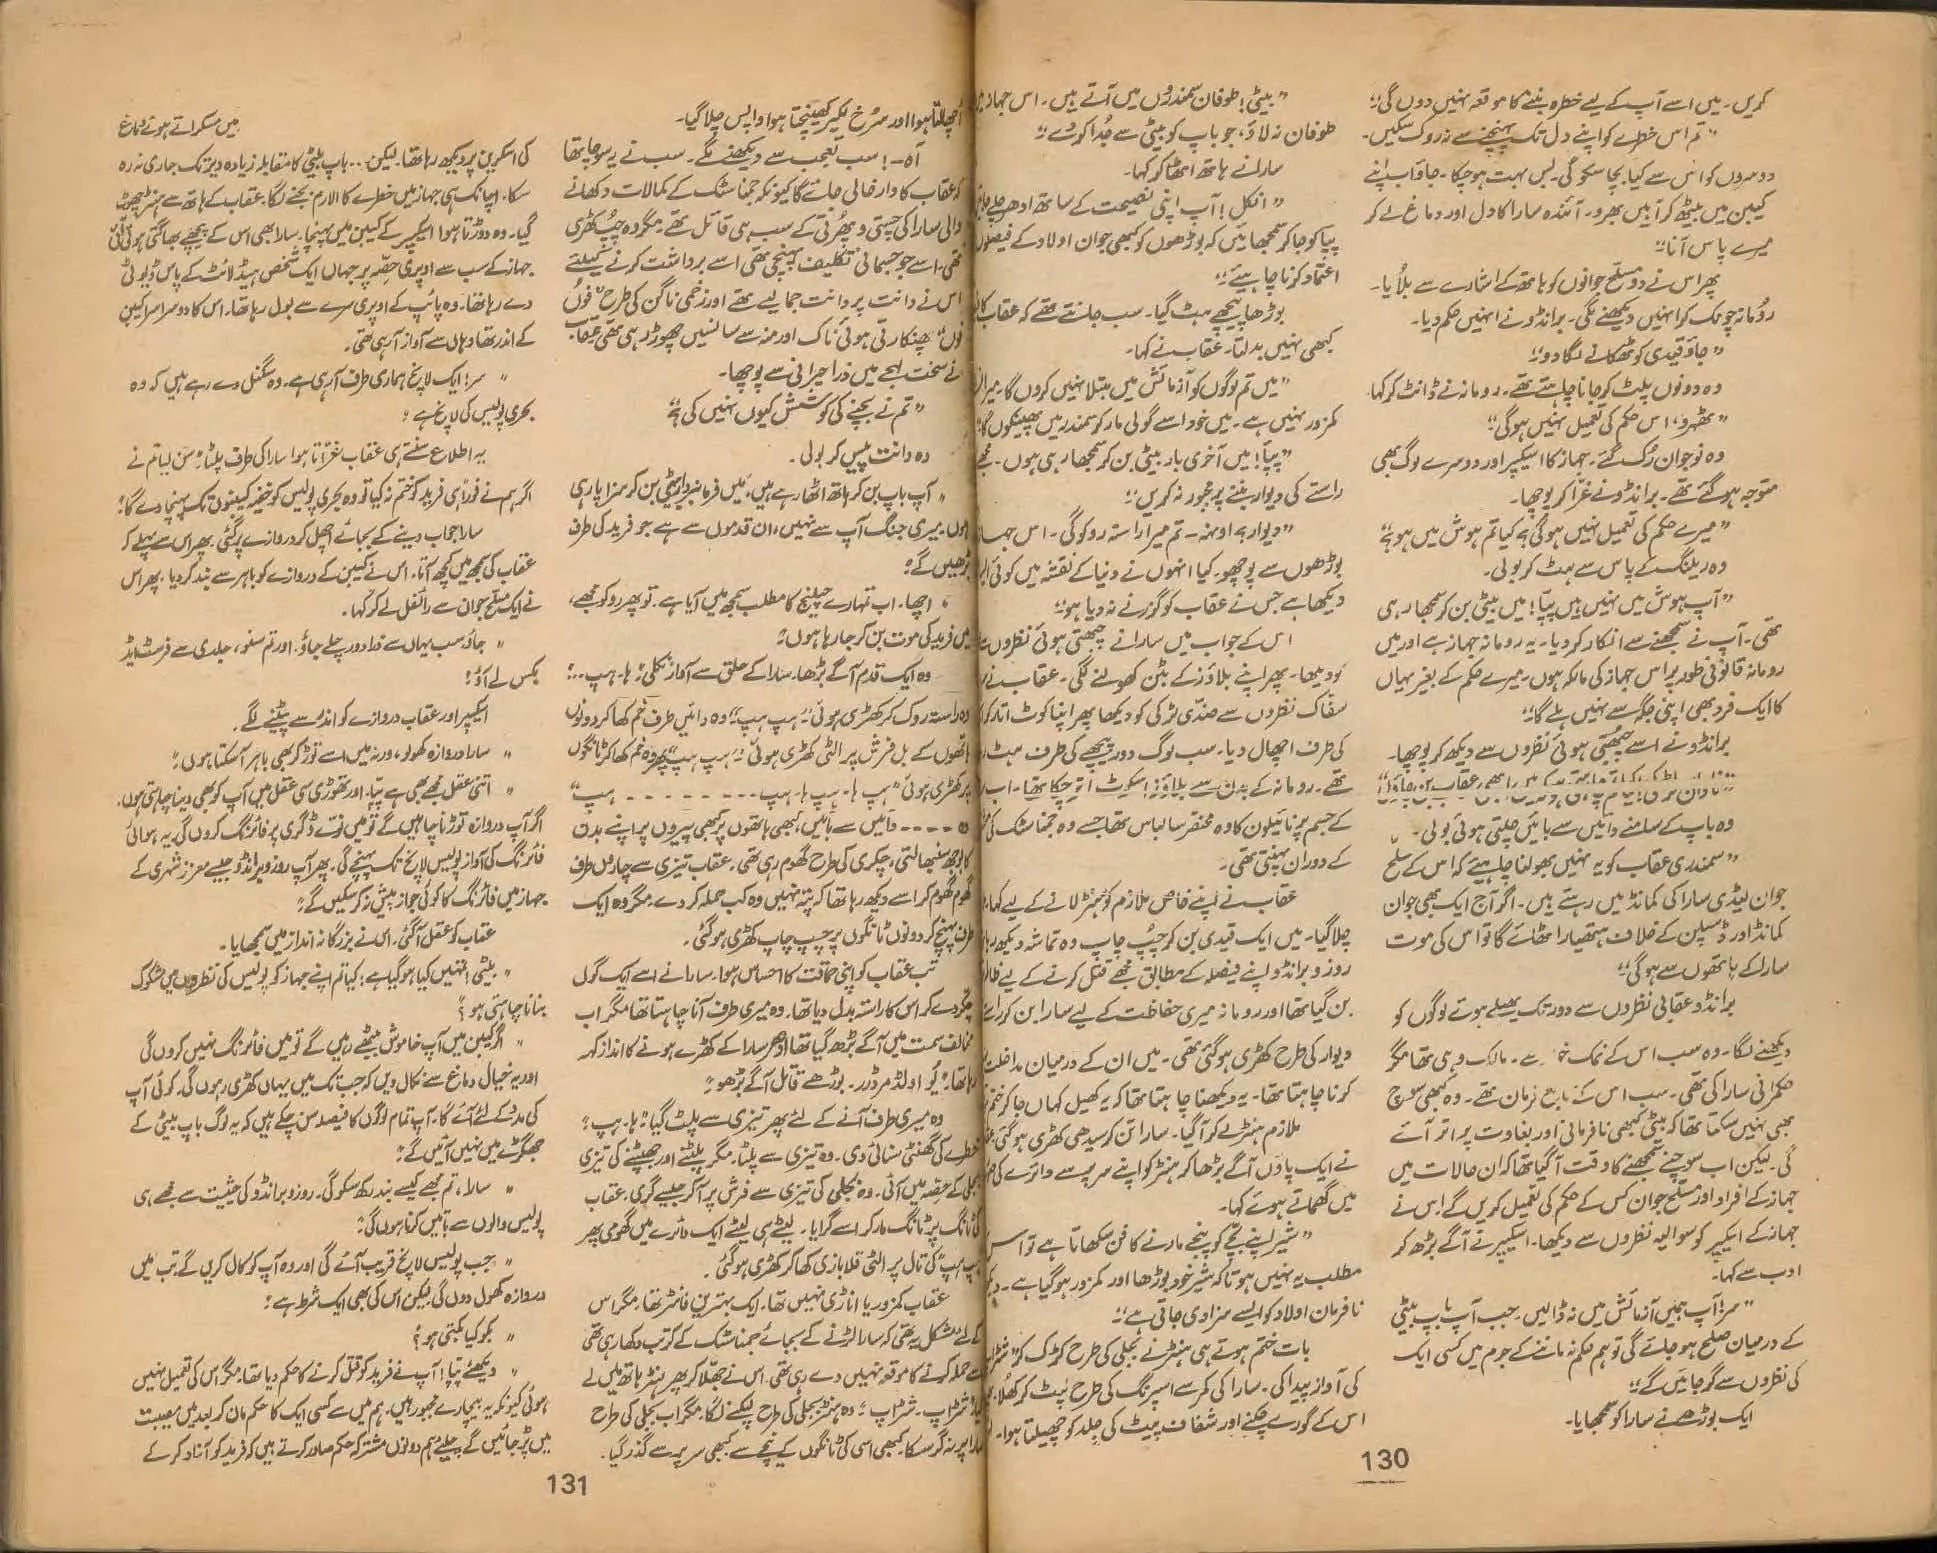 کریں۔ میں اسے آپ کے لیے خطرہ بننے کا موقعہ نہیں دوں گی“
”تم اس خطرے کو اپنے دل تک پہنچنے سے نہ روک سکیں۔
دوسروں کو اس سے کیا بچا سکو گی۔ بس بہت ہو چکا۔ جاؤ اب اپنے
کیبن میں بیٹھ کر آہیں بھرو۔ آئندہ سارا کا دل اور دماغ لے کر
میرے پاس آنا“
پھر اس نے دو مسلح جوانوں کو ہاتھ کے اشارے سے بلایا۔
رومانہ چونک کر انہیں دیکھنے لگی۔ برانڈو نے انہیں حکم دیا۔
”جاؤ قیدی کو ٹھکانے لگا دو“
وہ دونوں پلٹ کر جانا چاہتے تھے۔ رومانہ نے ڈانٹ کر کہا
”ٹھہرو، اس حکم کی تعمیل نہیں ہوگی“
وہ نوجوان رک گئے۔ جہاز کا اسکیپر اور دوسرے لوگ بھی
متوجہ ہو گئے تھے۔ برانڈو نے غرّا کر پوچھا۔
”میرے حکم کی تعمیل نہیں ہوگی؟ کیا تم ہوش میں ہو؟“
وہ ریلنگ کے پاس سے ہٹ کر بولی۔
”آپ ہوش میں نہیں ہیں پپا! میں بیٹی بن کر سمجھا رہی
تھی۔ آپ نے سمجھنے سے انکار کر دیا۔ یہ رومانہ جہاز ہے اور میں
رومانہ قانونی طور پر اس جہاز کی مالکہ ہوں۔ میرے حکم کے بغیر یہاں
کا ایک فرد بھی اپنی جگہ سے نہیں ہلے گا“
برانڈو نے اسے چبھتی ہوئی نظروں سے دیکھ کر پوچھا۔
وہ باپ کے سامنے دائیں سے بائیں چلتی ہوئی بولی۔
”سمندری عقاب کو یہ نہیں بھولنا چاہیئے کہ اس کے مسلح
جوان لیڈی سارا کی کمانڈ میں رہتے ہیں۔ اگر آج ایک بھی جوان
کمانڈ اور ڈسپلن کے خلاف ہتھیار اٹھائے گا تو اس کی موت
سارا کے ہاتھوں سے ہوگی“
برانڈو عقابی نظروں سے دور تک پھیلے ہوئے لوگوں کو
دیکھنے لگا۔ وہ سب اس کے نمک خوار تھے۔ مالک وہی تھا مگر
حکمرانی سارا کی تھی۔ سب اس کے تابع فرمان تھے۔ وہ کبھی سوچ
بھی نہیں سکتا تھا کہ بیٹی کبھی نافرمانی اور بغاوت پر اتر آئے
گی۔ لیکن اب سوچنے سمجھنے کا وقت آ گیا تھا کہ ان حالات میں
جہاز کے افراد اور مسلح جوان کس کے حکم کی تعمیل کریں گے! اس نے
جہاز کے اسکیپر کو سوالیہ نظروں سے دیکھا۔ اسکیپر نے آگے بڑھ کر
ادب سے کہا۔
”سر! آپ ہمیں آزمائش میں نہ ڈالیں۔ جب آپ باپ بیٹی
کے درمیان صلح ہو جائے گی تو ہم حکم نہ ماننے کے جرم میں کسی ایک
کی نظروں سے گر جائیں گے“
ایک بوڑھے نے سارا کو سمجھایا۔
”بیٹی! طوفان سمندروں میں آتے ہیں۔ اس جہاز میں
طوفان نہ لاؤ، جو باپ کو بیٹی سے جدا کر دے“
سارا نے ہاتھ اٹھا کر کہا۔
”انکل! آپ اپنی نصیحت کے ساتھ ادھر چلے جائیں
پپا کو جا کر سمجھائیں کہ بوڑھوں کو کبھی جوان اولاد کے فیصلوں
اعتماد کرنا چاہیئے“
بوڑھا پیچھے ہٹ گیا۔ سب جانتے تھے کہ عقاب
کبھی نہیں بدلتا۔ عقاب نے کہا۔
”میں تم لوگوں کو آزمائش میں مبتلا نہیں کروں گا۔ میرا
کمزور نہیں ہے۔ میں خود اسے گولی مار کر سمندر میں پھینکوں گا“
”پپا! میں آخری بار بیٹی بن کر سمجھا رہی ہوں۔ مجھے
راستے کی دیوار بننے پر مجبور نہ کریں“
”دیوار؟ اونہہ۔ تم میرا راستہ روکو گی۔ اس جہاز
بوڑھوں سے پوچھو۔ کیا انہوں نے دنیا کے نقشہ میں کوئی
دیکھا ہے جس نے عقاب کو گزرنے نہ دیا ہو“
اس کے جواب میں سارا نے چبھتی ہوئی نظروں سے
دیکھا۔ پھر اپنے بلاؤز کے بٹن کھولنے لگی۔ عقاب نے
سفاک نظروں سے ضدی لڑکی کو دیکھا پھر اپنا کوٹ اتار کر
کی طرف اچھال دیا۔ سب لوگ دور پیچھے کی طرف ہٹ
تھے۔ رومانہ کے بدن سے بلاؤز اسکرٹ اتر چکا تھا۔ اب
کے جسم پر نائیلون کا وہ مختصر سا لباس تھا جسے وہ جمناسٹک کی
کے دوران پہنتی تھی۔
عقاب نے اپنے خاص ملازم کو ہنٹر لانے کے لیے کہا۔
چلا گیا۔ میں ایک قیدی بن کر چپ چاپ وہ تماشہ دیکھ رہا
روزو برانڈو اپنے فیصلہ کے مطابق مجھے قتل کرنے کے لیے
بن گیا تھا اور رومانہ میری حفاظت کے لیے سارا بن کر
دیوار کی طرح کھڑی ہو گئی تھی۔ میں ان کے درمیان مداخلت
کرنا چاہتا تھا۔ یہ دیکھنا چاہتا تھا کہ یہ کھیل کہاں جا کر ختم
ملازم ہنٹر لے کر آ گیا۔ سارا تن کر سیدھی کھڑی ہو گئی
نے ایک پاؤں آگے بڑھا کر ہنٹر کو اپنے سر پر سے دائرے کی
میں گھماتے ہوئے کہا۔
”شیر اپنے بچے کو پنجے مارنے کا فن سکھاتا ہے تو اس
مطلب یہ نہیں ہوتا کہ شیر خود بوڑھا اور کمزور ہو گیا ہے۔
نافرمان اولاد کو ایسے سزا دی جاتی ہے“
بات ختم ہوتے ہی ہنٹر نے بجلی کی طرح کڑک کر
کی آواز پیدا کی۔ سارا کی کمر سے اسپرنگ کی طرح لپٹ کر کھلا
اس کے گورے چکنے اور شفاف پیٹ کی جلد کو چھیلتا ہوا۔
130
اُچھلتا ہوا اور سُرخ لکیر کھینچتا ہوا واپس چلا گیا۔
آہ۔! سب تعجب سے دیکھنے لگے۔ سب نے یہ سوچا تھا
کہ عقاب کا وار خالی جائے گا کیونکہ جمناسٹک کے کمالات دکھانے
والی سارا کی چستی و پھرتی کے سب ہی قائل تھے۔ مگر وہ چپ کھڑی
تھی۔ اسے جو جسمانی تکلیف پہنچی تھی اسے برداشت کرنے کیلئے
اس نے دانت پر دانت جما لیے تھے اور زخمی ناگن کی طرح ”فوں
فوں“ پھنکارتی ہوئی ناک اور منہ سے سانسیں چھوڑ رہی تھی عقاب
نے سخت لہجے میں ذرا حیرانی سے پوچھا۔
”تم نے بچنے کی کوشش کیوں نہیں کی؟“
وہ دانت پیس کر بولی۔
”آپ باپ بن کر ہاتھ اٹھا رہے ہیں، میں فرمانبردار بیٹی بن کر سزا پا رہی
ہوں۔ میری جنگ آپ سے نہیں، ان قدموں سے ہے جو فرید کی طرف
بڑھیں گے“
”اچھا۔ اب تمہارے چیلنج کا مطلب سمجھ میں آیا ہے۔ تو پھر روکو مجھے،
میں فرید کی موت بن کر جا رہا ہوں“
وہ ایک قدم آگے بڑھا۔ سارا کے حلق سے آواز نکلی ”ہا۔ ہپ..“
وہ راستہ روک کر کھڑی ہوئی ”ہپ ہپ“ وہ دائیں طرف خم کھا کر دونوں
ہاتھوں کے بل فرش پر الٹی کھڑی ہوئی ”ہپ ہپ“ پھر وہ خم کھا کر ٹانگوں
پر کھڑی ہوئی ”ہپ ہا۔ ہپ ہا۔ ہپ - - - - - - - - ہپ“
- - - - دائیں سے بائیں، کبھی ہاتھوں پر کبھی پیروں پر اپنے بدن
کا بوجھ سنبھالتی، چکری کی طرح گھوم رہی تھی۔ عقاب تیزی سے چاروں طرف
گھوم گھوم کر اسے دیکھ رہا تھا کہ پتہ نہیں وہ کب حملہ کر دے۔ مگر وہ ایک
طرف پہنچ کر دونوں ٹانگوں پر چپ چاپ کھڑی ہو گئی۔
تب عقاب کو اپنی حماقت کا احساس ہوا۔ سارا نے اسے ایک گول
چکر دے کر اس کا راستہ بدل دیا تھا۔ وہ میری طرف آنا چاہتا تھا مگر اب
مخالف سمت میں آگے بڑھ گیا تھا ادھر سارا کے کھڑے ہونے کا انداز کہہ
رہا تھا۔ ”یو اولڈ مرڈرر۔ بوڑھے قاتل آگے بڑھو“
وہ میری طرف آنے کے لئے پھر تیزی سے پلٹ گیا ”ہا۔ ہپ“
خطرے کی گھنٹی سنائی دی۔ وہ تیزی سے پلٹا۔ مگر پلٹنے اور جھپٹنے کی تیزی
بجلی کے حصہ میں آئی۔ وہ بجلی کی تیزی سے فرش پر آ کر جیسے گری۔ عقاب
کی ٹانگ پر ٹانگ مار کر اسے گرایا۔ لیٹے ہی لیٹے ایک دائرے میں گھومی پھر
ہپ ہپ کی تال پر الٹی قلابازی کھا کر کھڑی ہو گئی۔
عقاب کمزور یا اناڑی نہیں تھا۔ ایک بہترین فائٹر تھا۔ مگر اس
کے لئے مشکل یہ تھی کہ سارا لڑنے کے بجائے جمناسٹک کے کرتب دکھا رہی تھی
اسے حملہ کرنے کا موقعہ نہیں دے رہی تھی۔ اس نے جھلّا کر پھر ہنٹر ہاتھ میں لے
لیا ”شڑاپ۔ شڑاپ“ وہ ہنٹر بجلی کی طرح لپکنے لگا۔ مگر اب بجلی کی طرح
سارا پر نہ گر سکا۔ کبھی اسی کی ٹانگوں کے نیچے سے کبھی سر پر سے گذر گیا۔
میں مسکراتے ہوئے دماغ
کی اسکرین پر دیکھ رہا تھا۔ لیکن... باپ بیٹی کا مقابلہ زیادہ دیر تک جاری نہ رہ
سکا۔ اچانک ہی جہاز میں خطرے کا الارم بجنے لگا۔ عقاب کے ہاتھ سے ہنٹر چھوٹ
گیا۔ وہ دوڑتا ہوا اسکیپر کے کیبن میں پہنچا۔ سارا بھی اس کے پیچھے بھاگتی ہوئی آئی
جہاز کے سب سے اوپری حصّہ پر جہاں ایک شخص ہیڈ لائٹ کے پاس ڈیوٹی
دے رہا تھا۔ وہ پائپ کے اوپری سرے سے بول رہا تھا۔ اس کا دوسرا سرا کیبن
کے اندر تھا وہاں سے آواز آ رہی تھی۔
”سر! ایک لانچ ہماری طرف آ رہی ہے۔ وہ سگنل دے رہے ہیں کہ وہ
بحری پولیس کی لانچ ہے“
یہ اطلاع سنتے ہی عقاب غرّاتا ہوا سارا کی طرف پلٹا ”سن لیا تم نے
اگر ہم نے فوراً ہی فرید کو ختم نہ کیا تو وہ بحری پولیس کو خفیہ کیبنوں تک پہنچا دے گا“
سارا جواب دینے کے بجائے اچھل کر دروازے پر گئی۔ پھر اس سے پہلے کہ
عقاب کی سمجھ میں کچھ آتا۔ اس نے کیبن کے دروازے کو باہر سے بند کر دیا۔ پھر اس
نے ایک مسلح جوان سے رائفل لے کر کہا۔
”جاؤ سب یہاں سے ذرا دور چلے جاؤ۔ اور تم سنو، جلدی سے فرسٹ ایڈ
بکس لے آؤ“
اسکیپر اور عقاب دروازے کو اندر سے پیٹنے لگے۔
”سارا دروازہ کھولو، ورنہ میں اسے توڑ کر بھی باہر آ سکتا ہوں“
”اتنی عقل مجھے بھی ہے پپا۔ اور تھوڑی سی عقل میں آپ کو بھی دینا چاہتی ہوں۔
اگر آپ دروازہ توڑنا چاہیں گے تو میں نوّے ڈگری پر فائرنگ کروں گی۔ یہ ہوائی
فائرنگ کی آواز پولیس لانچ تک پہنچے گی۔ پھر آپ روزو برانڈو جیسے معزز شہری کے
جہاز میں فائرنگ کا کوئی جواز پیش نہ کر سکیں گے“
عقاب کو عقل آ گئی۔ اس نے بزرگانہ انداز میں سمجھایا۔
”بیٹی! تمہیں کیا ہو گیا ہے؛ کیا تم اپنے جہاز کو پولیس کی نظروں میں مشکوک
بنانا چاہتی ہو؟“
”اگر کیبن میں آپ خاموش بیٹھے رہیں گے تو میں فائرنگ نہیں کروں گی
اور یہ خیال دماغ سے نکال دیں کہ جب تک میں یہاں کھڑی رہوں گی۔ کوئی آپ
کی مدد کے لئے آئے گا۔ آپ تمام لوگوں کا فیصلہ سن چکے ہیں کہ یہ لوگ باپ بیٹی کے
جھگڑے میں نہیں آئیں گے“
”سارا، تم مجھے کیسے بند رکھ سکو گی۔ روزو برانڈو کی حیثیت سے مجھے ہی
پولیس والوں سے باتیں کرنا ہوں گی“
”جب پولیس لانچ قریب آئے گی اور وہ آپ کو کال کریں گے۔ تب میں
دروازہ کھول دوں گی لیکن اس کی بھی ایک شرط ہے“
”بکو کیا بکتی ہو؟“
”دیکھئے پپا! آپ نے فرید کو قتل کرنے کا حکم دیا تھا۔ مگر اس کی تعمیل نہیں
ہوئی کیونکہ یہ بیچارے مجبور ہیں۔ ہم میں سے کسی ایک کا حکم مان کر بعد میں مصیبت
میں پڑ جائیں گے چلئے ہم دونوں مشترکہ حکم صادر کرتے ہیں کہ فرید کو آزاد کر کے
131